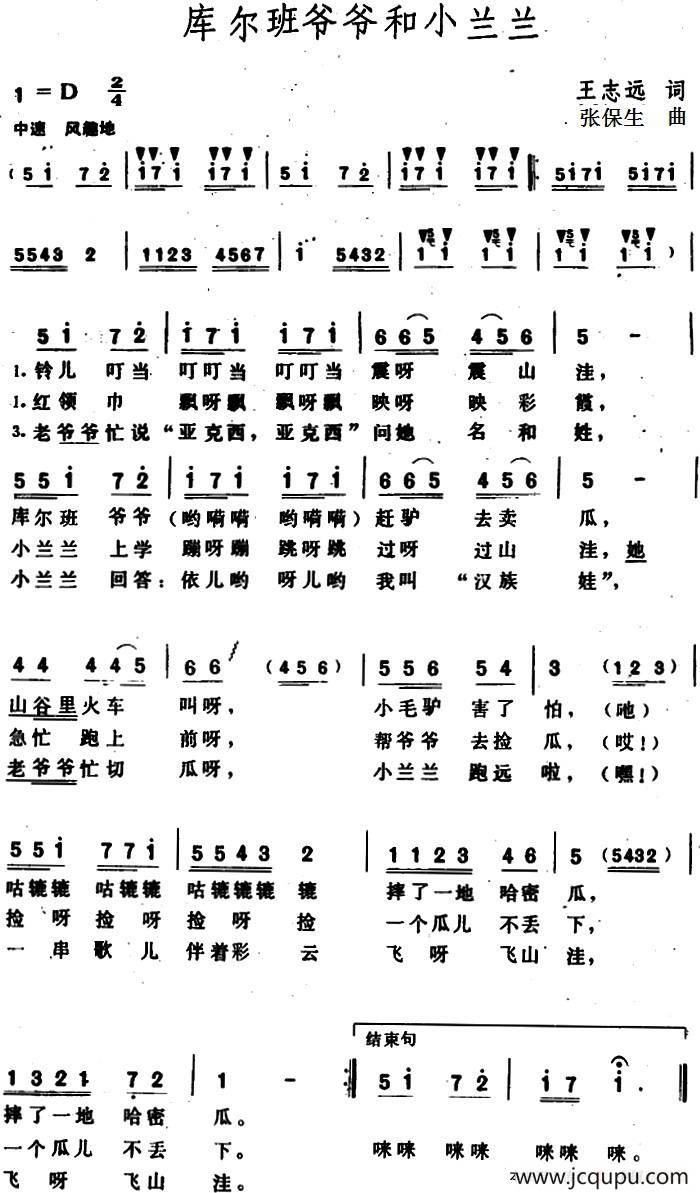 库尔班爷爷和小兰兰
1=D 2/4
王志远 词
中速 风趣地
张保生 曲
(5i 72 | i7i i7i | 5i 72 | i7i i7i |: 5i7i 5i7i |
5543 2 | 1123 4567 | i 5432 | 5i i 5i i | 5i i 5i i )|
5i 72 | i7i i7i | 665 456 | 5 - |
1.铃儿 叮当 叮叮当 叮叮当 震呀 震山 洼,
1.红领 巾 飘呀飘 飘呀飘 映呀 映彩 霞,
3.老爷爷忙说“亚克西,亚克西”问她 名和 姓,
55i 72 | i7i i7i | 665 456 | 5 - |
库尔班 爷爷 (哟嗬嗬 哟嗬嗬) 赶驴 去卖 瓜,
小兰兰 上学 蹦呀蹦 跳呀跳 过呀 过山 洼,她
小兰兰 回答:依儿哟 呀儿哟 我叫 “汉族 娃”,
44 445 | 66 (456) | 556 54 | 3 (123) |
山谷里火车 叫呀, 小毛驴 害了 怕,(吔)
急忙 跑上 前呀, 帮爷爷 去捡 瓜,(哎!)
老爷爷忙切 瓜呀, 小兰兰 跑远 啦,(嘿!)
55i 77i | 5543 2 | 1123 46 | 5 (5432) |
咕辘辘 咕辘辘 咕辘辘辘 辘 摔了一地 哈密 瓜,
捡呀 捡呀 捡呀 捡 一个瓜儿 不丢 下,
一串 歌儿 伴着彩 云 飞呀 飞山 洼,
结束句
1321 72 | 1 - :| 5i 72 | i7 i. ‖
摔了一地 哈密 瓜。
一个瓜儿 不丢 下。 咪咪 咪咪 咪咪 咪。
飞呀 飞山 洼。
www.jcqupu.com